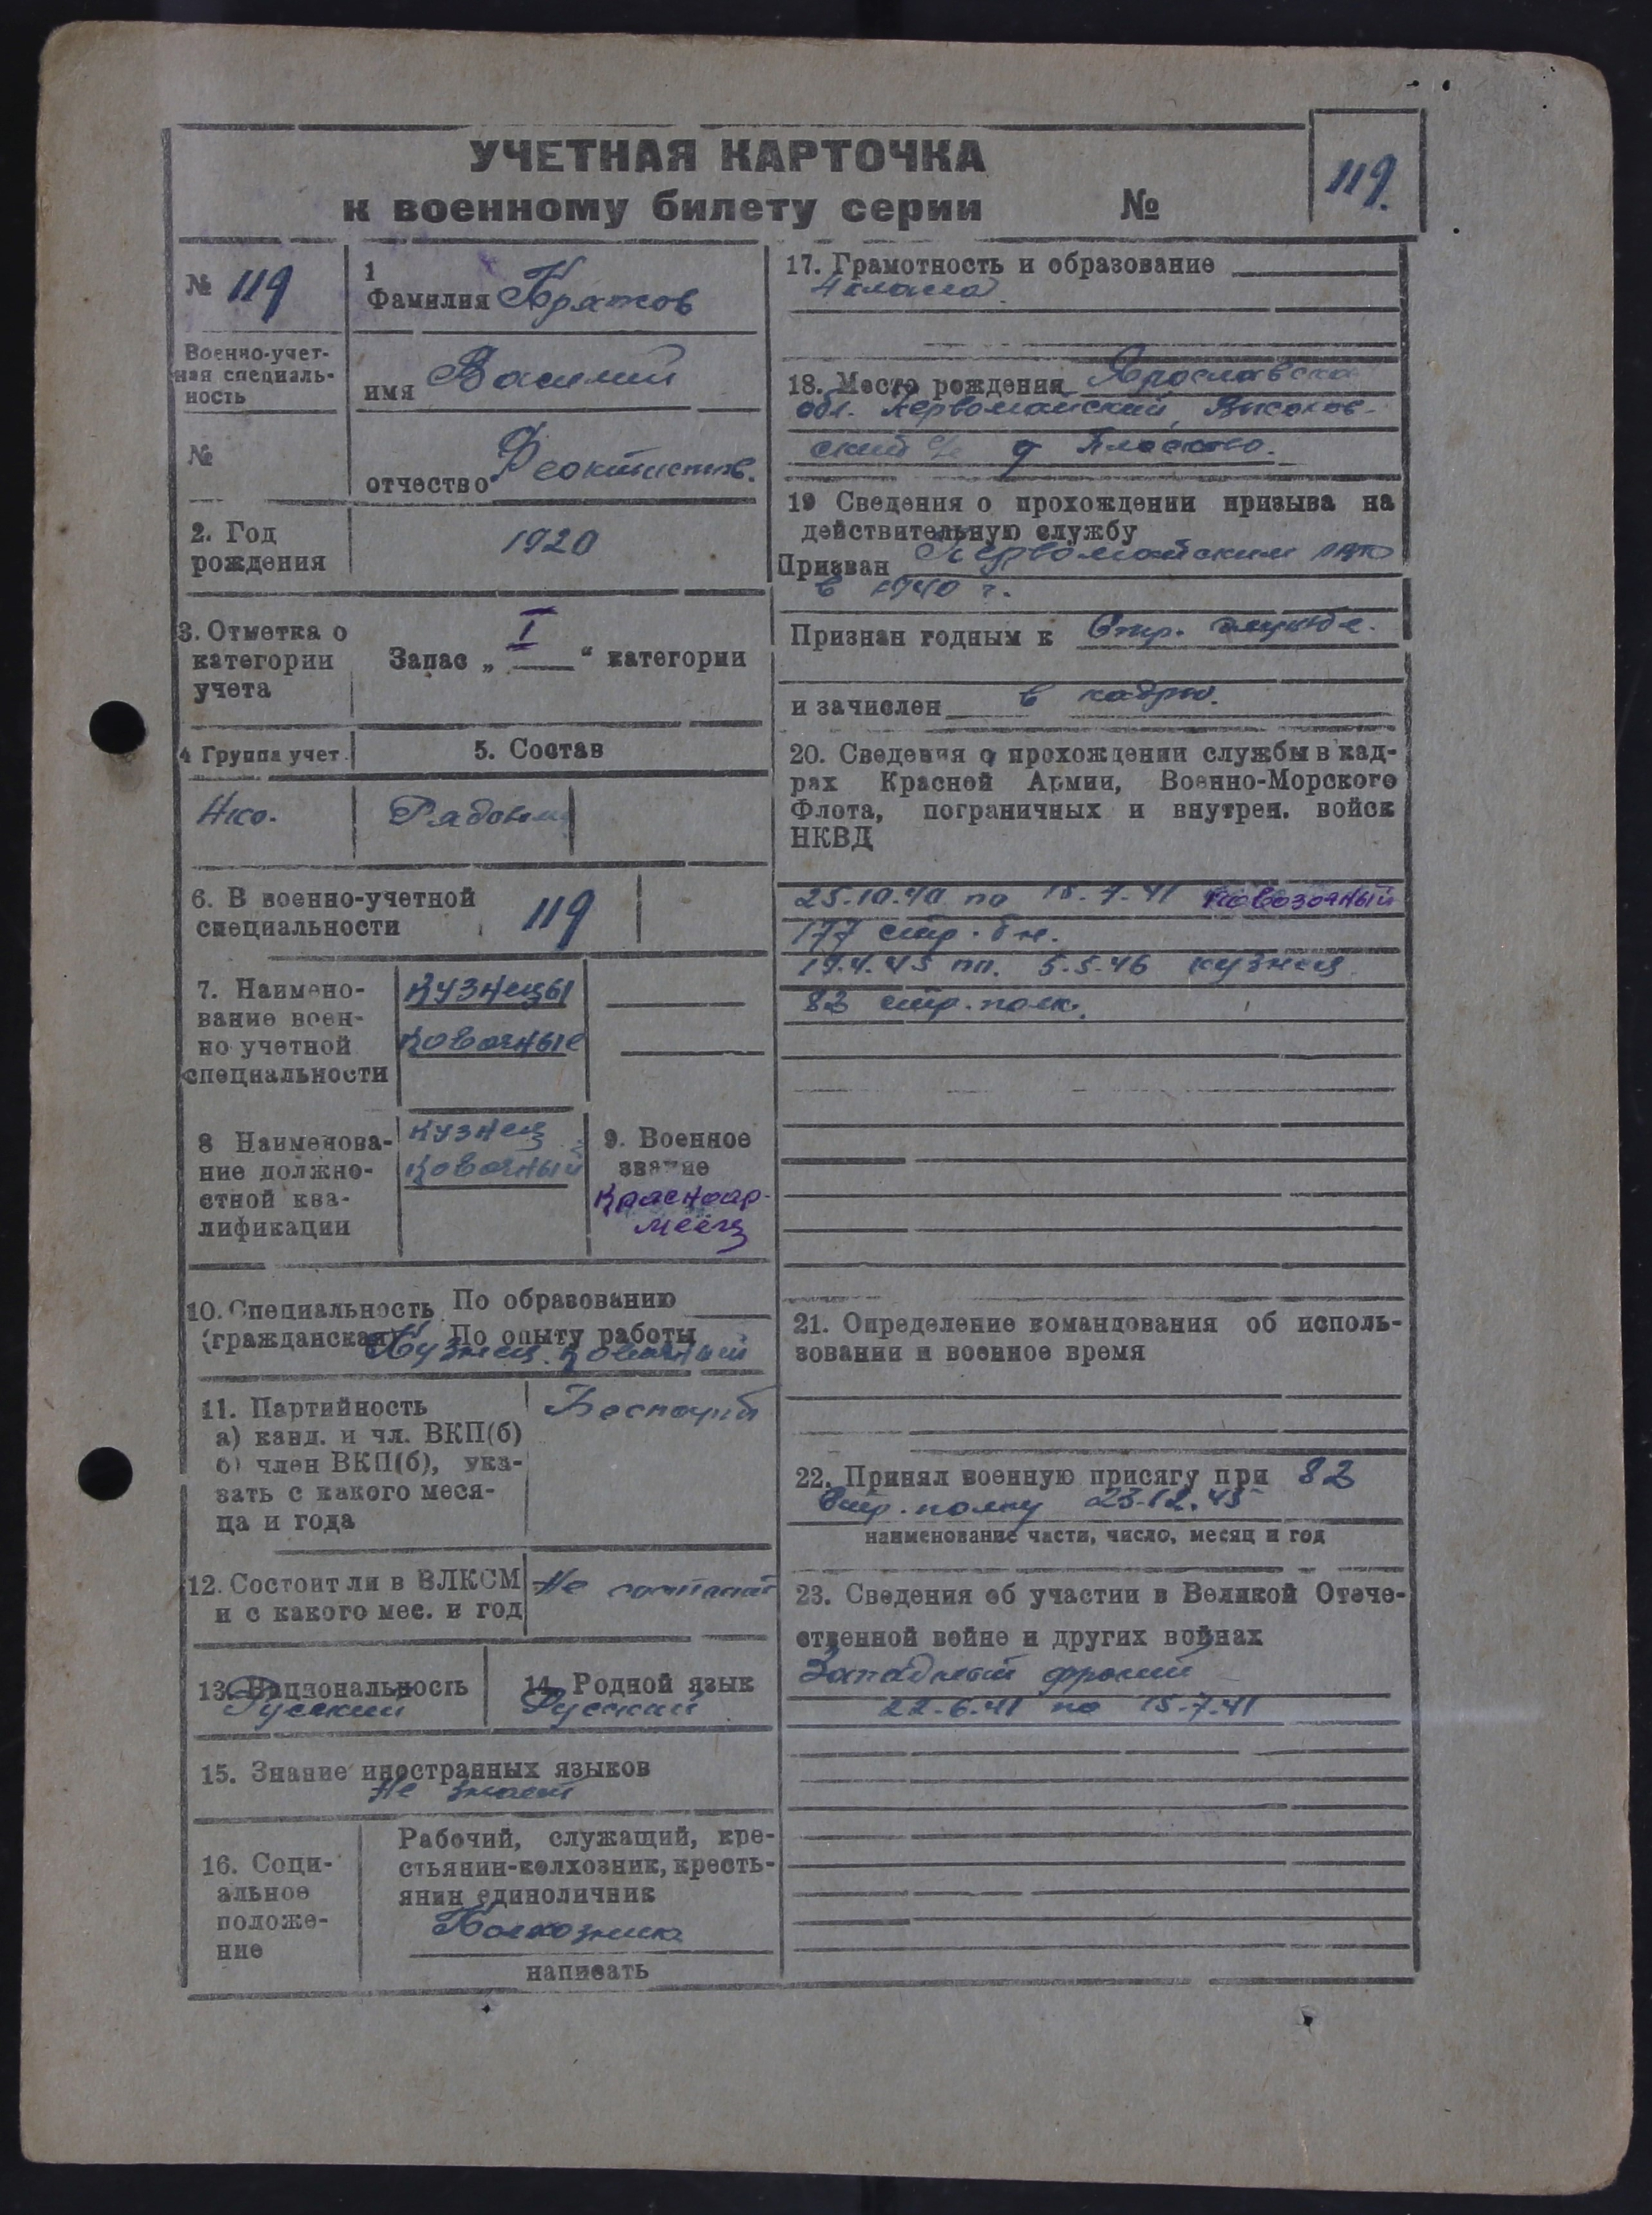 УЧЕТНАЯ КАРТОЧКА
к военному билету серии №
119.
№ 119
Военно-учет-
ная специаль-
ность
№
1
Фамилия
имя Василий
отчество Феоктистов.
2. Год
рождения
1920
3. Отметка о
категории
учета
Запас „ I “ категории
4 Группа учет.
5. Состав
Нко.
Рядовой
6. В военно-учетной
специальности
119
7. Наимено-
вание воен-
но учетной
специальности
Кузнецы
Ковочные
8 Наименова-
ние должно-
стной ква-
лификации
Кузнец
Ковочный
9. Военное
звание
Красноар-
меец
10. Специальность По образованию
(гражданская) По опыту работы
Кузнец. Ковочный
11. Партийность
а) канд. и чл. ВКП(б)
б) член ВКП(б), ука-
зать с какого меся-
ца и года
Беспарт
12. Состоит ли в ВЛКСМ
и с какого мес. и год
Не состоит
13. Национальность
Русский
14. Родной язык
Русский
15. Знание иностранных языков
Не знает
16. Соци-
альное
положе-
ние
Рабочий, служащий, кре-
стьянин-колхозник, кресть-
янин единоличник
Колхозник
написать
17. Грамотность и образование
4 класса.
18. Место рождения Ярославская
обл. Первомайский, Высоков-
ский с/с д
19 Сведения о прохождении призыва на
действительную службу
Призван Первомайским
в 1940 г.
Признан годным к Стр. службе.
и зачислен в кадры.
20. Сведения о прохождении службы в кад-
рах Красной Армии, Военно-Морского
Флота, пограничных и внутрен. войск
НКВД
25.10.40 по 15.7.41 повозочный
177 стр. бн.
19.4.45 по. 5.5.46 кузнец
83 стр. полк.
21. Определение командования об исполь-
зовании и военное время
22. Принял военную присягу при 83
Стр. полку 23.12.45
наименование части, число, месяц и год
23. Сведения об участии в Великой Отече-
ственной войне и других войнах
Западный фронт
22.6.41 по 15.7.41